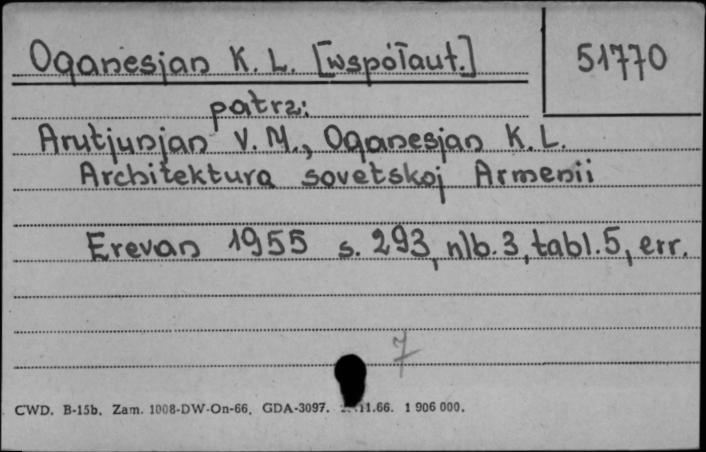 Oganesjan K. L. [współaut.]
51770
patrz:
Arutjunjan V. M., Oganesjan K. L.
Architektura sovetskoj Armenii
Erevan 1955 s. 293, nlb. 3, tabl. 5, err.
7
CWD. B-15b. Zam. 1008-DW-On-66. GDA-3097. 1 906 000.